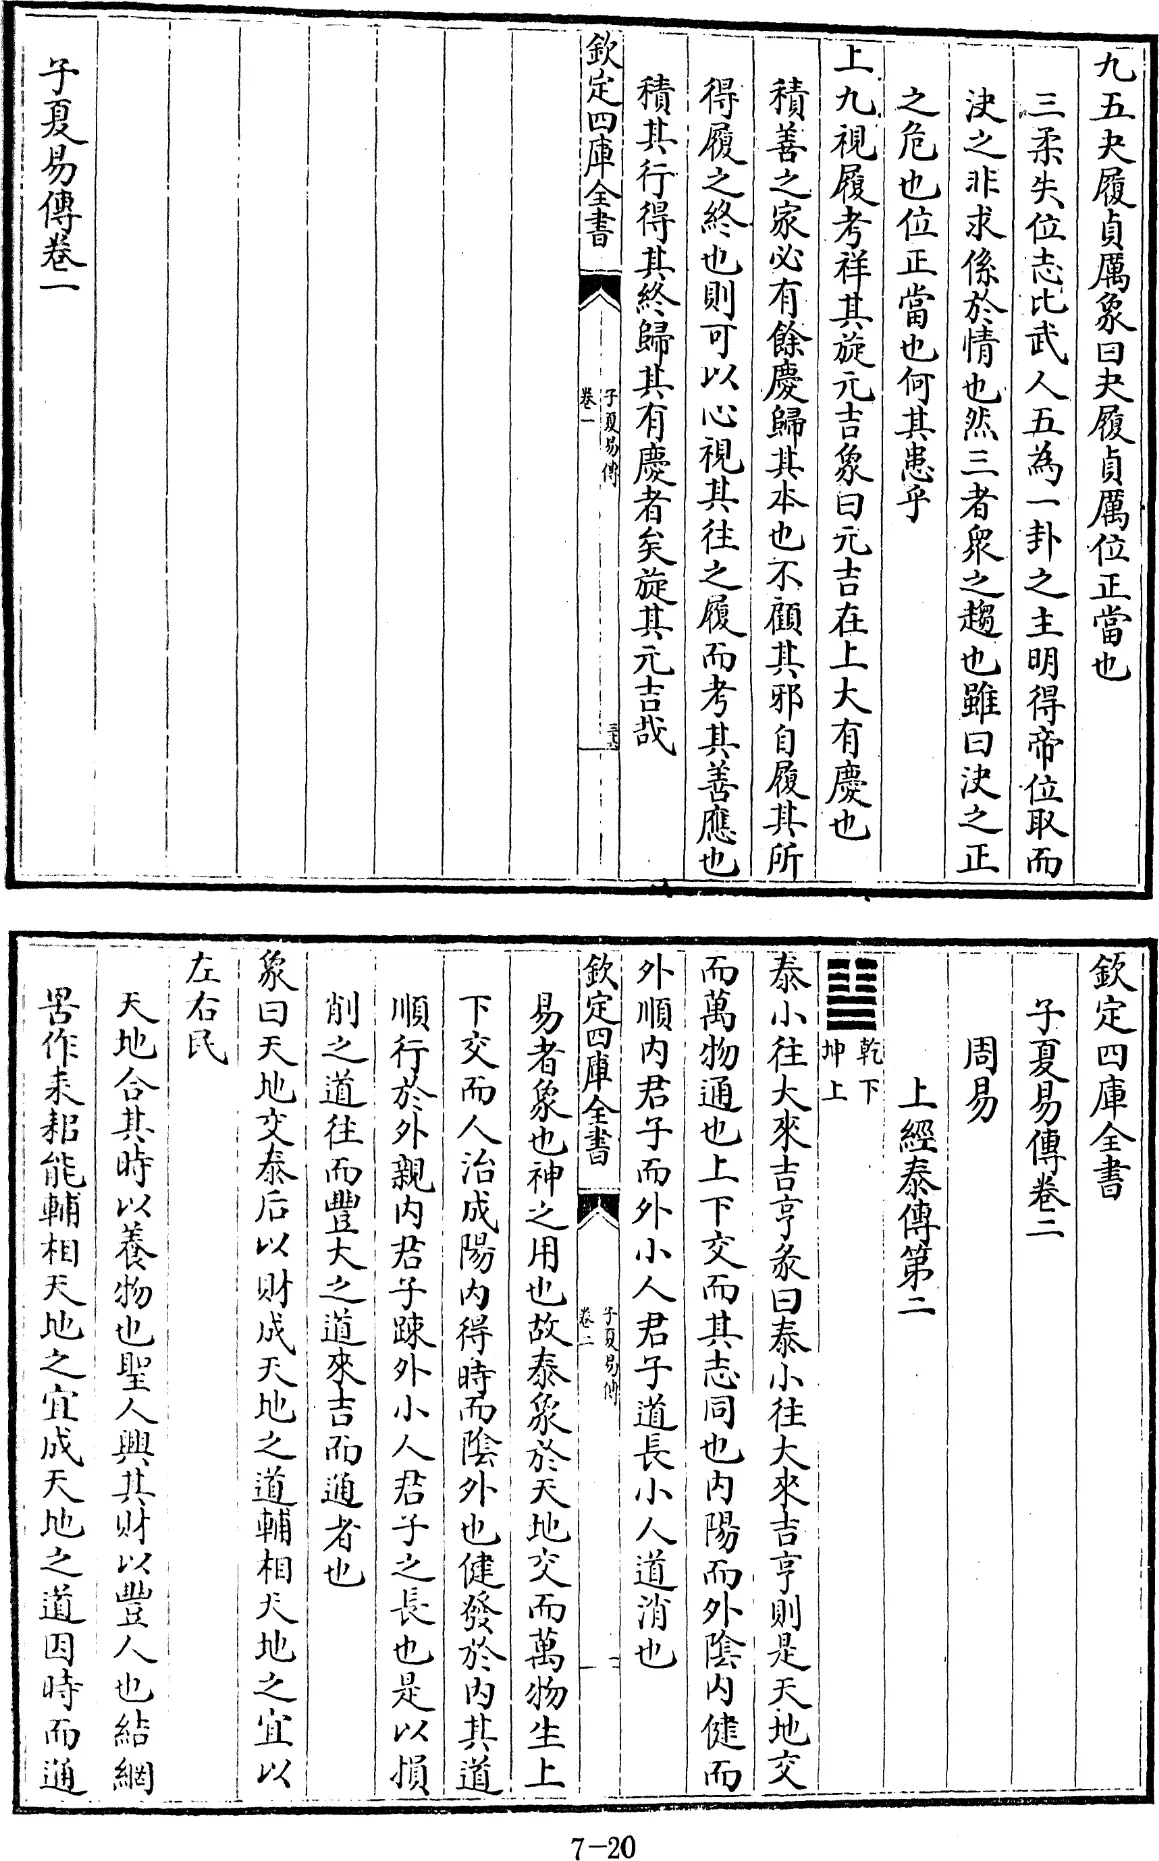 九五夬履貞厲象曰夬履貞厲位正當也
三柔失位志比武人五為一卦之主明得帝位取而
決之非求係於情也然三者衆之趨也雖曰決之正
之危也位正當也何其患乎
上九視履考祥其旋元吉象曰元吉在上大有慶也
積善之家必有餘慶歸其本也不顧其邪自履其所
得履之終也則可以心視其往之履而考其善應也
積其行得其終歸其有慶者矣旋其元吉哉
欽定四庫全書
子夏易傳
卷一
三十六
子夏易傳卷一
欽定四庫全書
子夏易傳卷二
周易
上經泰傳第二
乾下
坤上
泰小往大來吉亨彖曰泰小往大來吉亨則是天地交
而萬物通也上下交而其志同也內陽而外陰內健而
外順內君子而外小人君子道長小人道消也
欽定四庫全書
子夏易傳
卷二
一
易者象也神之用也故泰象於天地交而萬物生上
下交而人治成陽內得時而陰外也健發於內其道
順行於外親內君子踈外小人君子之長也是以損
削之道往而豐大之道來吉而通者也
象曰天地交泰后以財成天地之道輔相天地之宜以
左右民
天地合其時以養物也聖人興其財以豐人也結網
罟作耒耜能輔相天地之宜成天地之道因時而通
7-20